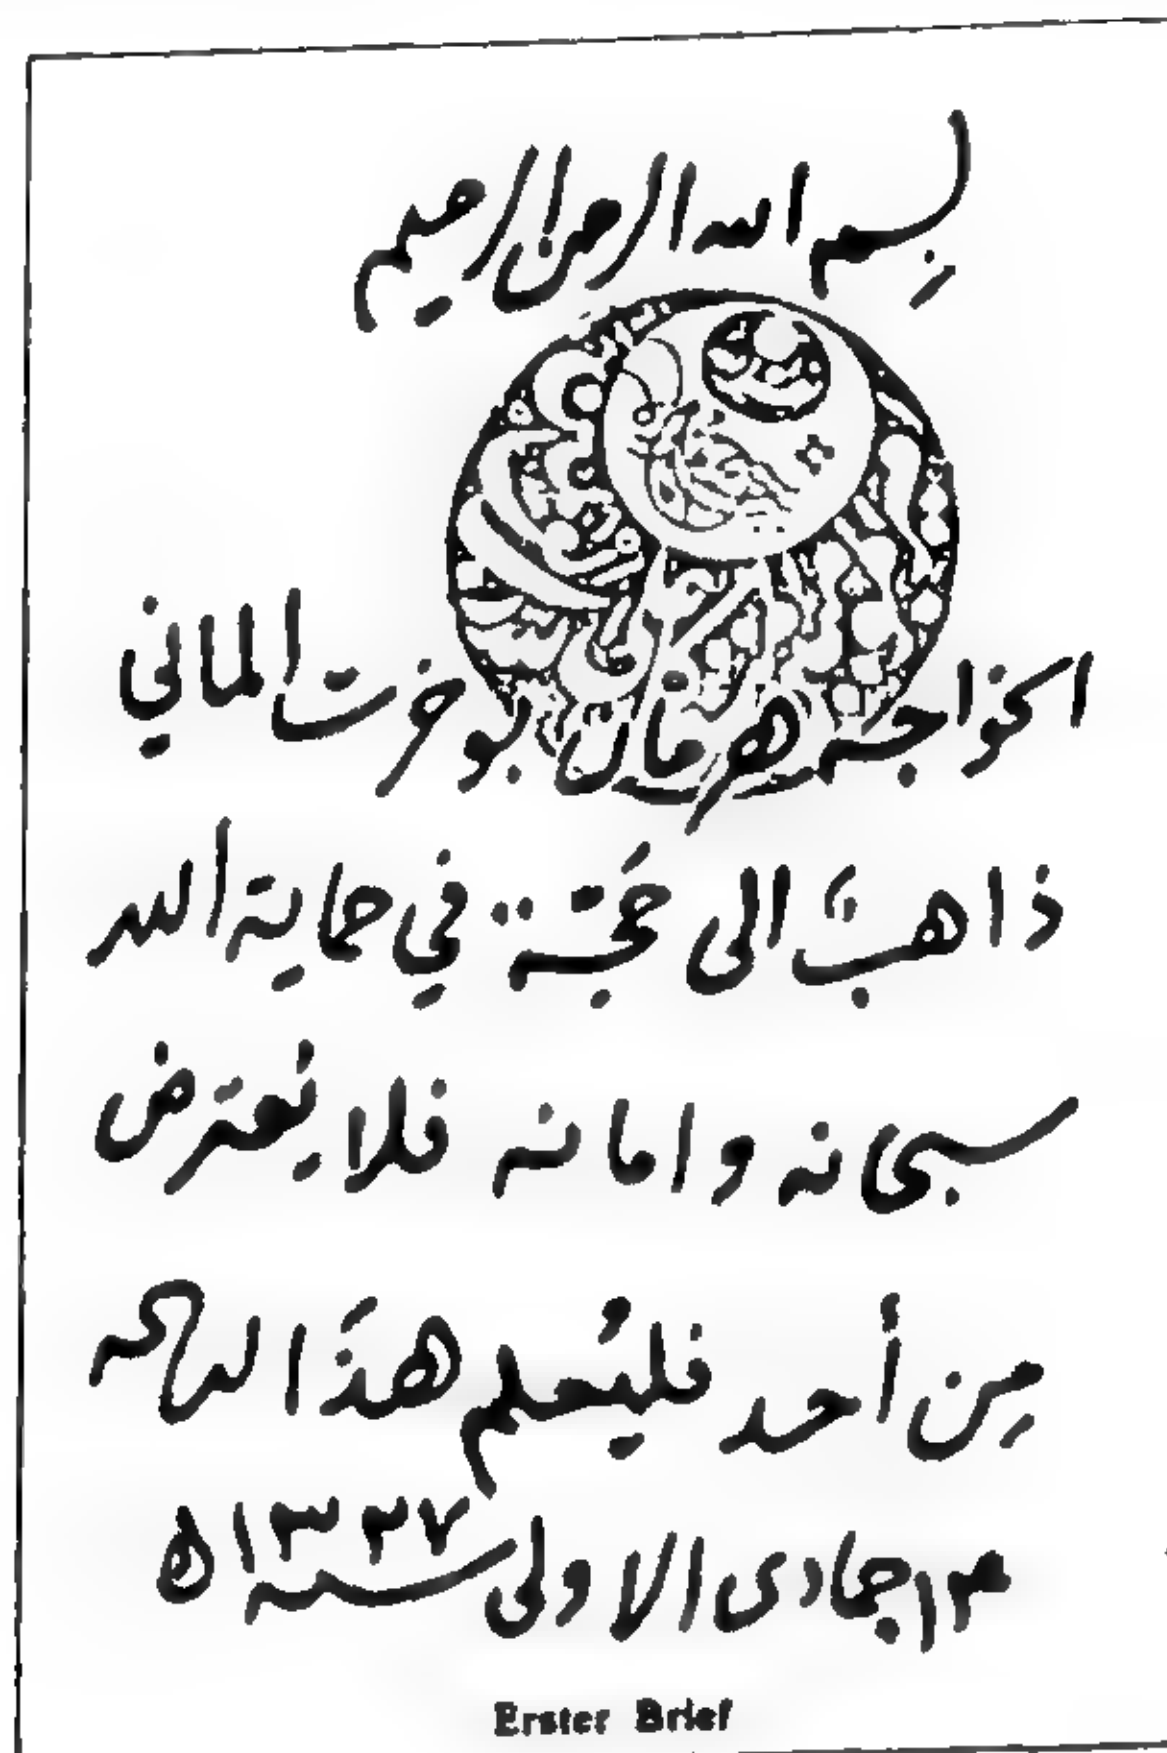 بِسم الله الرحمن الرحيم
الخواجه هرمان بوخرت الماني
ذاهبً الى حَجّة في حماية الله
سبحانه وامانه فلا يعترض
مِن أحد فليُعلم هذَا
١٣ جمادى الاولى سنه ١٣٢٧ ه
Erster Brief